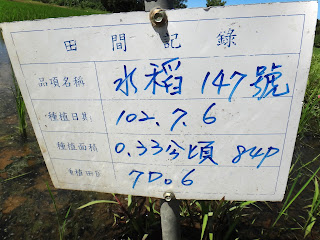 田間記錄
品項名稱 水稻147號
種植日期 102.7.6
種植面積 0.33公頃 84P
種植田區 7D06